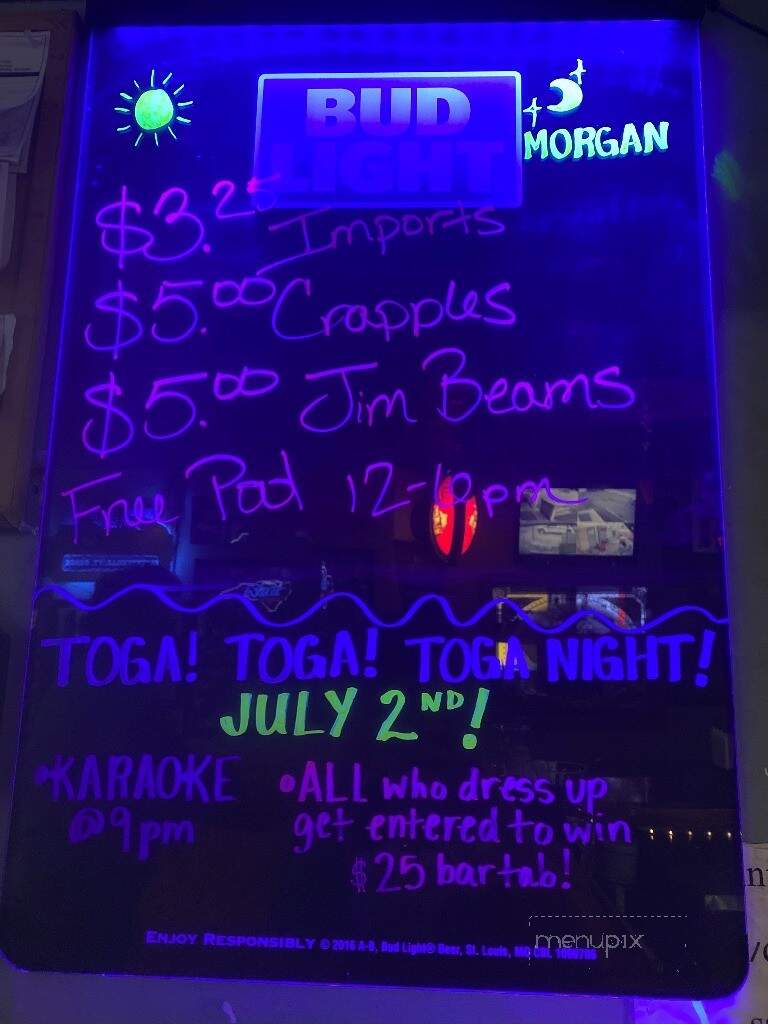 BUD
LIGHT
MORGAN
$3.25 Imports
$5.00 Crapples
$5.00 Jim Beams
Free Pool 12-6pm
TOGA! TOGA! TOGA NIGHT!
JULY 2ND!
•KARAOKE
@9pm
•ALL who dress up
get entered to win
$25 bar tab!
menupix
ENJOY RESPONSIBLY © 2016 A-B, Bud Light® Beer, St. Louis, MO